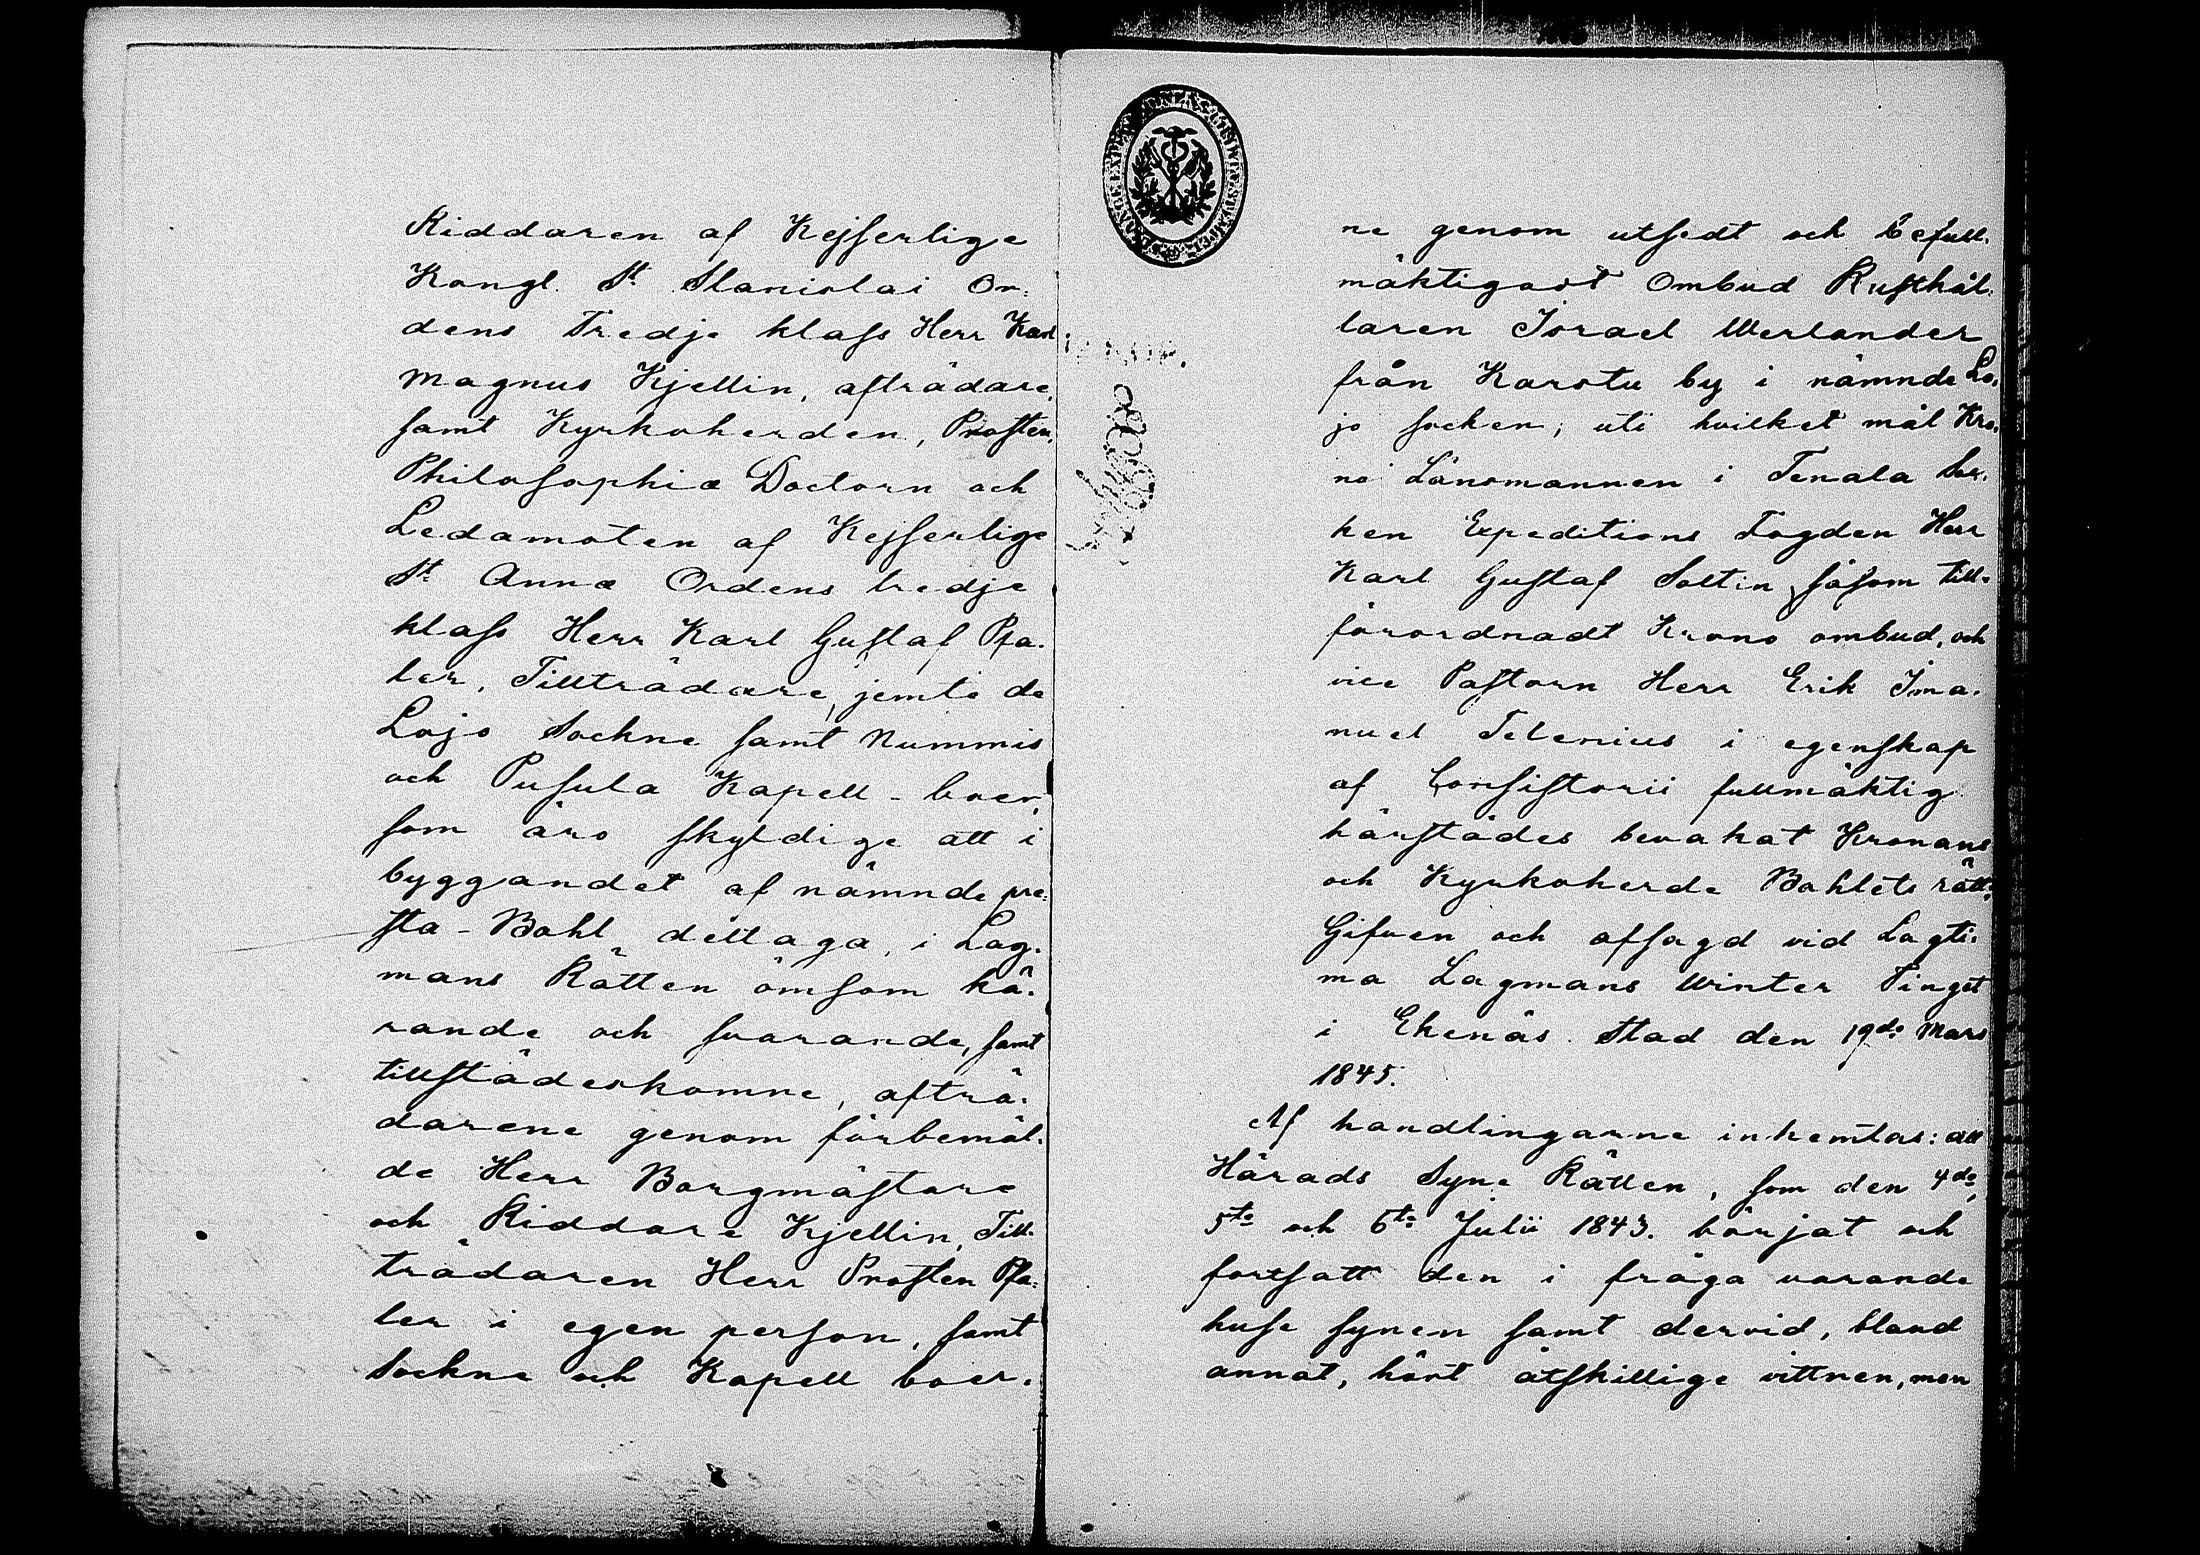 Riddaren af Kejserlige
Kongl. St. Stanislai Or-
dens Tredje klass Herr Karl
Magnus Kjellin, afträdare,
samt Kyrkoherden, Prosten,
Philosophiæ Doctorn och
Ledamoten af Kejserlige
St. Annæ Ordens tredje
klass Herr Karl Gustaf Pfa-
ler, Tillträdare, jemte de
Lojo Sockne samt Nummis
och Pusula Kapell-boer,
som äro skyldige att i
byggandet af nämnde pre-
sta-Bohl deltaga, i Lag-
mans Rätten ömsom kä-
rande och svarande, samt
tillstädeskomne, afträ-
darene genom förbemäl-
de Herr Borgmästare
och Riddare Kjellin, Till-
trädaren Herr Prosten Pfa-
ler i egen person, samt
Sockne och Kapell boer-
ne genom utsedt och befull-
mäktigadt Ombud Rusthål-
laren Israel Werlander
från Karstu by i nämnde Lo-
jo socken; uti hvilket mål Kro-
no Länsmannen i Tenala Soc-
ken Expeditions Fogden Herr
Karl Gustaf Soltin såsom till-
förordnadt Krono ombud, och
vice Pastorn Herr Erik Ima-
nuel Telenius i egenskap
af Consistorii fullmäktig
härstädes bevakat Kronans
och Kyrkoherde Bohlets rätt.
Gifven och afsagd vid Lagti-
ma Lagmans Winter Tinget
i Ekenäs Stad den 19de Mars
1845.
Af handlingarne inhemtas: att
Härads Syne Rätten, som den 4de,
5te och 6te Julii 1843. börjat och
fortsatt den i fråga varande
huse synen samt dervid, bland
annat, hört åtskillige vittnen, men